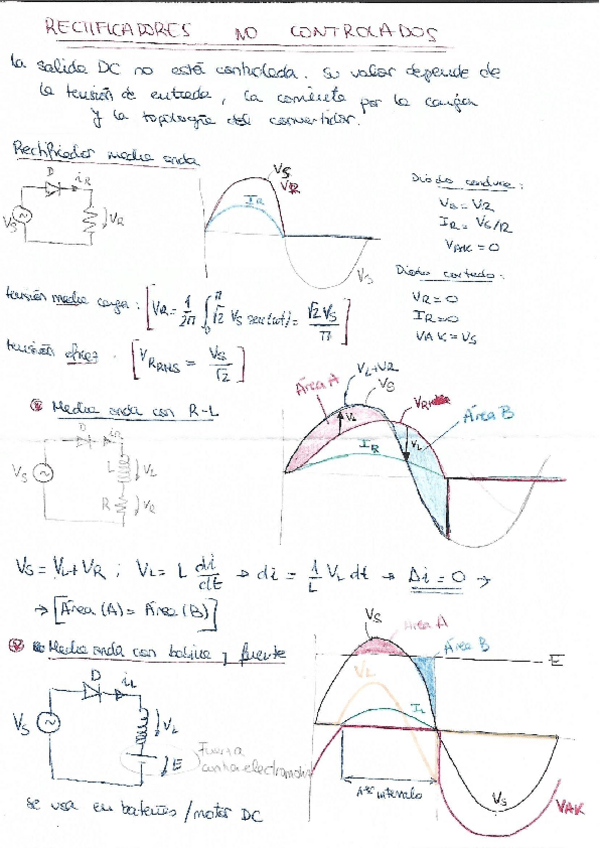 RECTIFICADORES NO CONTROLADOS
La salida DC no está controlada. Su valor depende de
la tensión de entrada, la corriente por la carga
y la topología del convertidor.
Rectificador media onda
D
iR
VS
VR
VS
VR
IR
VS
Diodo conduce:
VS = VR
IR = VS/R
VAK = 0
Diodo cortado:
VR = 0
IR = 0
VAK = VS
tensión media carga: [VR = 1/2π ∫0π √2 VS sen(ωt) = √2 VS/π]
tensión eficaz: [VRRMS = VS/√2]
Media onda con R-L
D
VS
L
VL
R
VR
Área A
VL+VR
VS
VL
VR
IR
VL
Área B
VS = VL + VR ; VL = L di/dt → di = 1/L VL dt → Δi = 0 →
→ [Área (A) = Área (B)]
Media onda con bobina y fuente
D
iL
VS
VL
E
Fuerza
contraelectromotriz
se usa en baterías / motor DC
VS
Área A
Área B
E
VL
IL
1er intervalo
VS
VAK